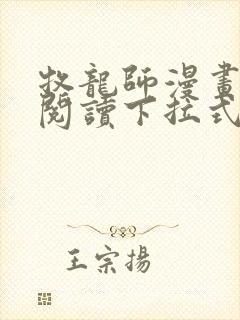 牧龍師漫畫
閱讀下拉式
王宗揚